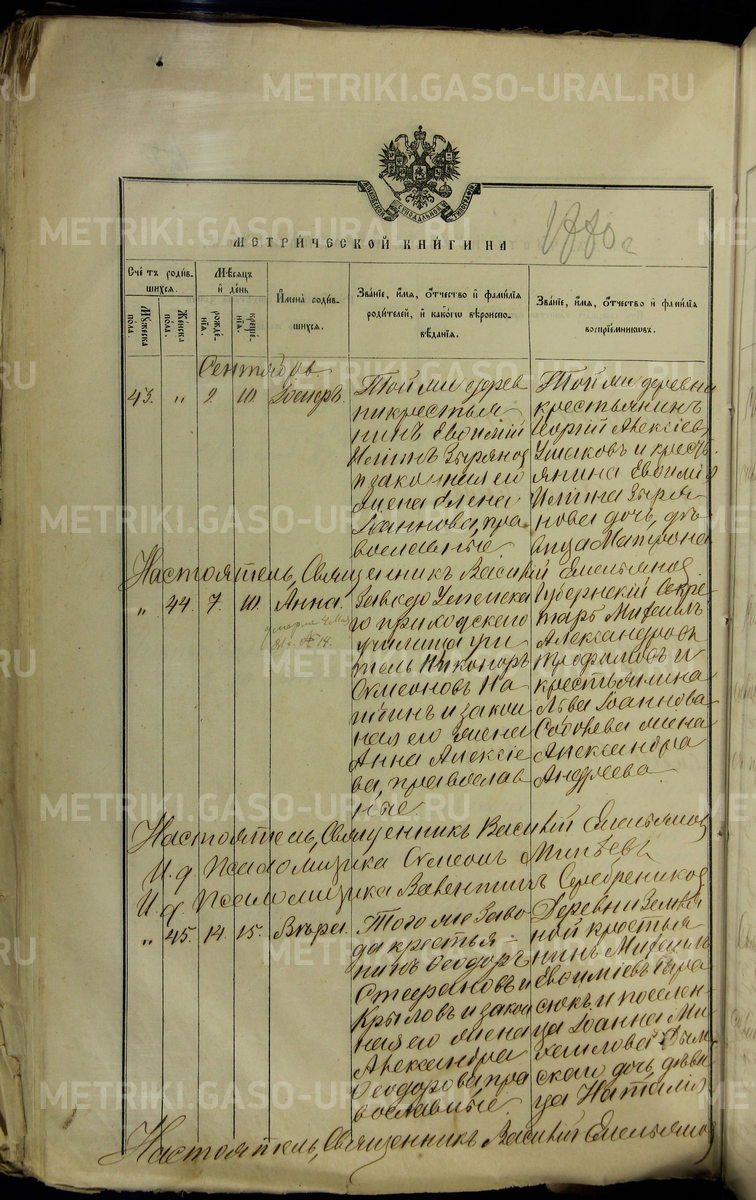 METRIKI.GASO-URAL.RU
МЕТРИ́ЧЕСКОЙ КНИ́ГИ НА 1880 г
Сче́тъ роди́вшихся.
Мꙋ́жеска по́ла.
Же́нска по́ла.
Мѣ́сяцъ и де́нь
рожде́нїя.
креще́нїя.
И҆мена̀ роди́вшихся.
Зва́нїе, и҆́мя, ѻ҆́тчество и҆ фами́лїя роди́телей, и҆ како́гѡ вѣроисповѣ́данїя.
Зва́нїе, и҆́мя, ѻ҆́тчество и҆ фами́лїя воспрїе́мниковъ.
Сентябрь
43. " 9. 10.
Той же дерев
ни крестья
нинъ Евѳимій
Илiинъ Зырянов
и законная его
жена Елена
Іоаннова, пра
вославные.
Той же деревни
крестьянинъ
Георгій Алексіев
Ушаковъ и кресть
янина Евѳимія
Иліина Зыря
нова дочь, дѣ
вица Матрона
Настоятель, Священникъ Василій Емельянов
" 44. 7. 10. Анна.
умерла
№ 14.
Завѣдо
го приходскаго
училища учи
тель Никаноръ
Симеоновъ
и закон
ная его жена
Анна Алексіе
ва, православ
ные.
Губернскій Секре
тарь Михаилъ
Александровъ
Трофимовъ и
крестьянина
Льва Іоаннова
жена
Александра
Андреева.
Настоятель, Священникъ Василій Емельянов
И. д. Псаломщика Симеонъ Митѣевъ
И. д. Псаломщика Валентинъ Серебренников
" 45. 14. 15. Вѣра.
Того же Заво
да крестья-
нинъ Ѳеодоръ
Стефановъ
Крыловъ и закон
ная его жена
Александра
Ѳеодорова, пра
вославные.
Деревни
ной крестья
нинъ Михаилъ
Евѳиміевъ Гера
сюкъ и поселен
ца Іоанна Ми
хаилова
скаго дочь, дѣви
ца Наталія
Настоятель, Священникъ Василій Емельянов